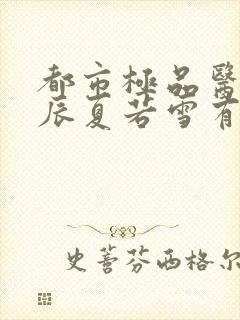 都市極品醫
辰夏若雪有
史蒈芬西格尔